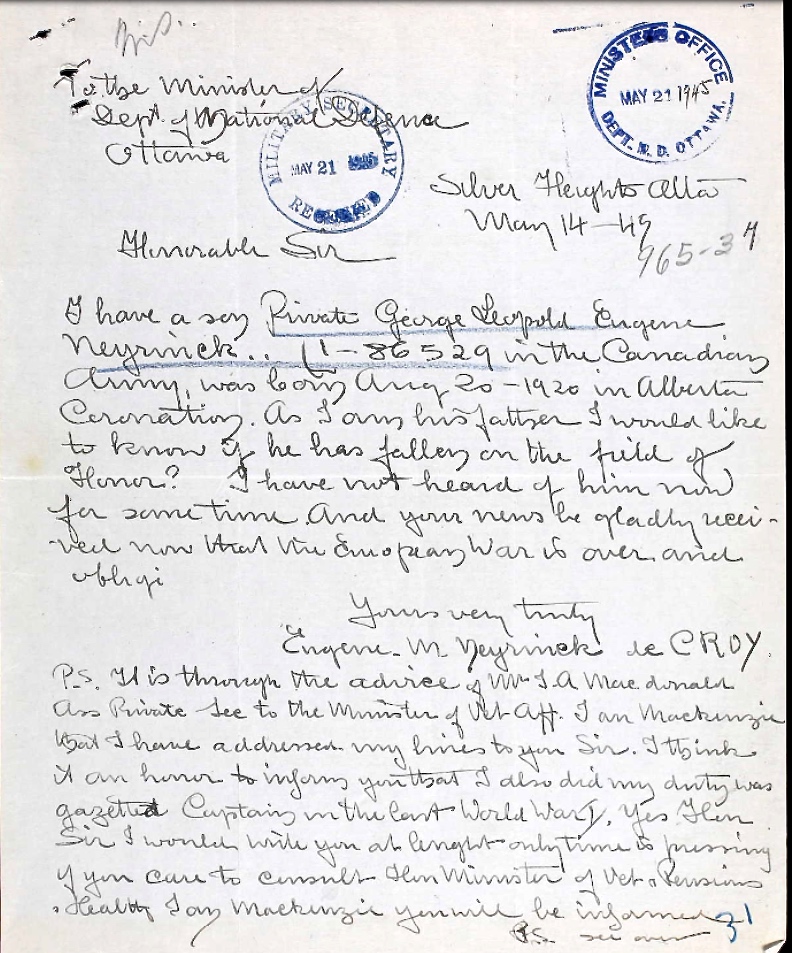 To the Minister of
Dept. of National Defence
Ottawa
MILITARY SECRETARY
MAY 21 1945
RECEIVED
MINISTER'S OFFICE
MAY 21 1945
DEPT. N. D. OTTAWA.
Silver Heights Alta
May 14-49
965-34
Honorable Sir
I have a son Private George Leopold Eugene
Neyrinck.. (1-86529 in the Canadian
Army, was born Aug 20-1920 in Alberta
Coronation. As I am his father I would like
to know if he has fallen on the field of
Honor? I have not heard of him now
for some time. And your news be gladly recei-
ved now that the European War is over and
oblige
Yours very truly
Eugene. M. Neyrinck de CROY.
P.S. It is through the advice of Mr J.A Macdonald
Ass Private Sec to the Minister of Vet. Aff. Ian Mackenzie
that I have addressed my lines to you Sir. I think
it an honor to inform you that I also did my duty was
gazetted Captain in the last World War I, Yes Hon
Sir I would write you at lenght only time is pressing
if you care to consult Hon Minister of Vet. Pensions
& Health Ian Mackenzie you will be informed
P.S. see over
31